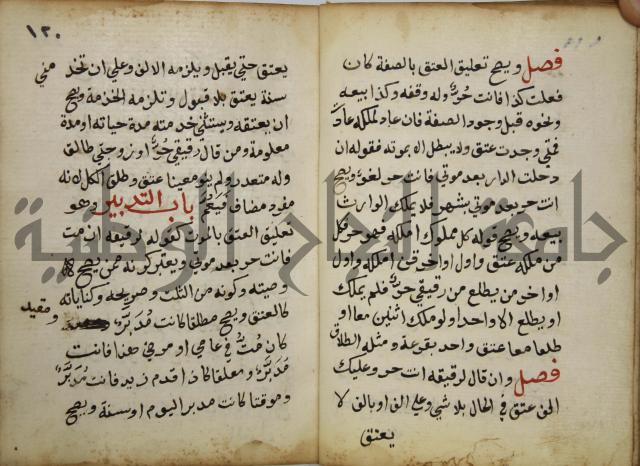 فصل ويصح تعليق العتق بالصفة كان
فعلت كذا فانت حر وله وقفه وكذا بيعه
ونحوه قبل وجود الصفة فان عاد لملكه عادت
فمتى وجدت عتق ولا يبطل الا بموته فقوله ان
دخلت الدار بعد موتي فانت حر لغو ويصح
انت حر بعد موتي بشهر فلا يملك الوارث
بيعه ويصح قوله كل مملوك املكه فهو حر فكل
من ملكه عتق واول او اخر قن املكه واول
او اخر من يطلع من رقيقي حر فلم يملك
او يطلع الا واحد او لو ملك اثنين معا او
طلعا معا عتق واحد بقرعة ومثله الطلاق
فصل وان قال لرقيقه انت حر وعليك
الف عتق في الحال بلا شي وعلى الف او بالف لا
يعتق
١٢٠
يعتق حتى يقبل ويلزمه الالف وعلى ان تخدمني
سنة يعتق بلا قبول وتلزمه الخدمة ويصح
ان يعتقه ويستثني خدمته مدة حياته او مدة
معلومة ومن قال رقيقي حر او زوجتي طالق
وله متعدد ولم ينو معينا عتق وطلق الكل لانه
مفرد مضاف فيعم باب التدبير وهو
تعليق العتق بالموت كقوله لرقيقه ان مت
فانت حر بعد موتي ويعتبر كونه ممن يصح
وصيته وكونه من الثلث وصريحه وكناياته
كالعتق ويصح مطلقا كانت مدبر ومقيد
كان مت في عامي او مرضي هذا فانت
مدبر ومعلقا كان اقدم زيد فانت مدبر
وموقتا كانت مدبر اليوم او سنة ويصح
جامعة النجاح الوطنية